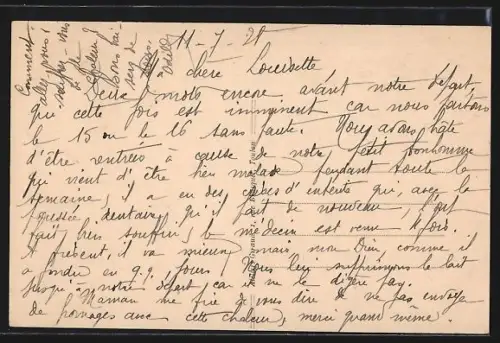 11-7-28
Chère Louisette
Deux mots encore avant notre départ
que cette fois est imminent car nous partons
le 15 ou le 16 sans faute. Nous avons hâte
d'être rentrés à cause de notre petit bonhomme
qui vient d'être bien malade pendant toute la
semaine, il a eu des crises d'entérite qui, avec la
poussée dentaire qu'il fait de nouveau, l'ont
fait bien souffrir, le médecin est venu 4 fois.
A présent, il va mieux mais mon Dieu comme il
a fondu en q.q. jours, Nous lui supprimons le lait
jusqu'à notre départ car il ne le digère pas.
Maman me prie de vous dire de ne pas envoyer
de fromages avec cette chaleur, merci quand même.
Comment
allez-vous ?
vous
chaleur
Bons
de